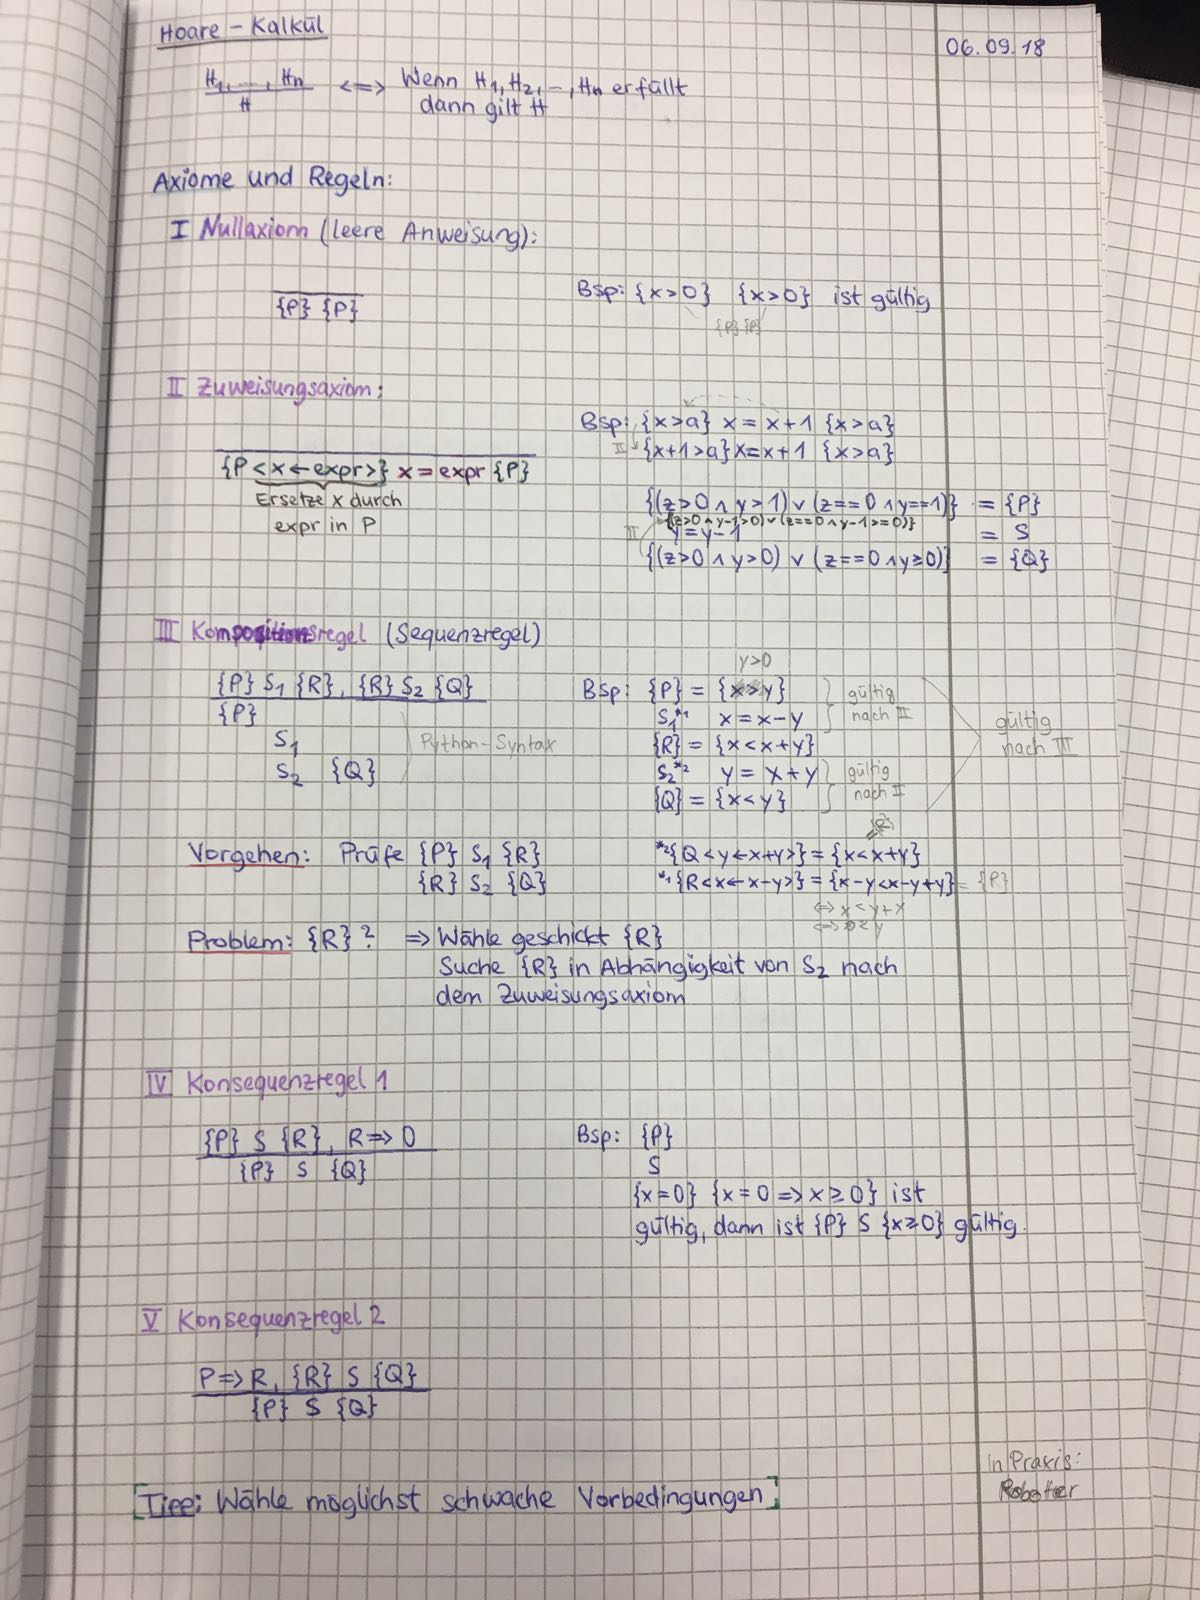 Hoare-Kalkül
06.09.18
H1, ..., Hn <=> Wenn H1, H2, ..., Hn erfüllt
H dann gilt H
Axiome und Regeln:
I Nullaxiom (leere Anweisung):
{P} {P}
Bsp: {x>0} {x>0} ist gültig
{P} {P}
II Zuweisungsaxiom:
{P<x←expr>} x=expr {P}
Ersetze x durch
expr in P
Bsp: {x>a} x=x+1 {x>a}
II {x+1>a} x=x+1 {x>a}
{(z>0 ∧ y>1) ∨ (z==0 ∧ y==1)} = {P}
{(z>0 ∧ y-1>0) ∨ (z==0 ∧ y-1>=0)}
II y=y-1 = S
{(z>0 ∧ y>0) ∨ (z==0 ∧ y≥0)} = {Q}
III Kompositionsregel (Sequenzregel)
{P} S1 {R}, {R} S2 {Q}
{P}
S1
S2 {Q}
Python-Syntax
y>0
Bsp: {P} = {x>y}
S1*1 x=x-y
gültig nach II
{R} = {x<x+y}
S2*2 y=x+y
{Q} = {x<y}
gültig nach II
gültig nach III
Vorgehen: Prüfe {P} S1 {R}
{R} S2 {Q}
*2{Q<y←x+y>} = {x<x+y}
*1{R<x←x-y>} = {x-y<x-y+y} = {P}
<=> x<y+x
<=> 0<y
Problem: {R}? => Wähle geschickt {R}
Suche {R} in Abhängigkeit von S2 nach
dem Zuweisungsaxiom
IV Konsequenzregel 1
{P} S {R}, R=>Q
{P} S {Q}
Bsp: {P}
S
{x=0} {x=0 => x≥0} ist
gültig, dann ist {P} S {x≥0} gültig.
V Konsequenzregel 2
P=>R, {R} S {Q}
{P} S {Q}
[Tipp: Wähle möglichst schwache Vorbedingungen]
in Praxis:
Roboter